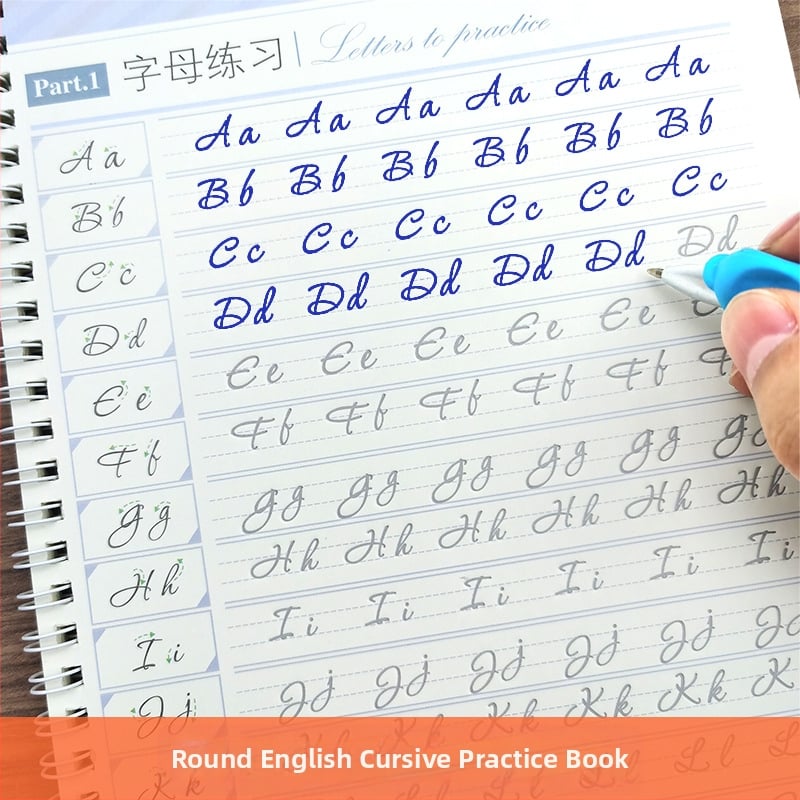 Part.1 字母练习 Letters to practice
A a A a A a A a A a A a A a
B b B b B b B b B b B b B b
C c C c C c C c C c C c C c
D d D d D d D d D d D d D d
E e E e E e E e E e E e E
F f F f F f F f F f F f F
G g G g G g G g G g G g G g
H h H h H h H h H h H h H h
I i I i I i I i I i I i I i
J j J j J j J j J j J j J
K k K k K k K k K k K k K
L l L l
Round English Cursive Practice Book